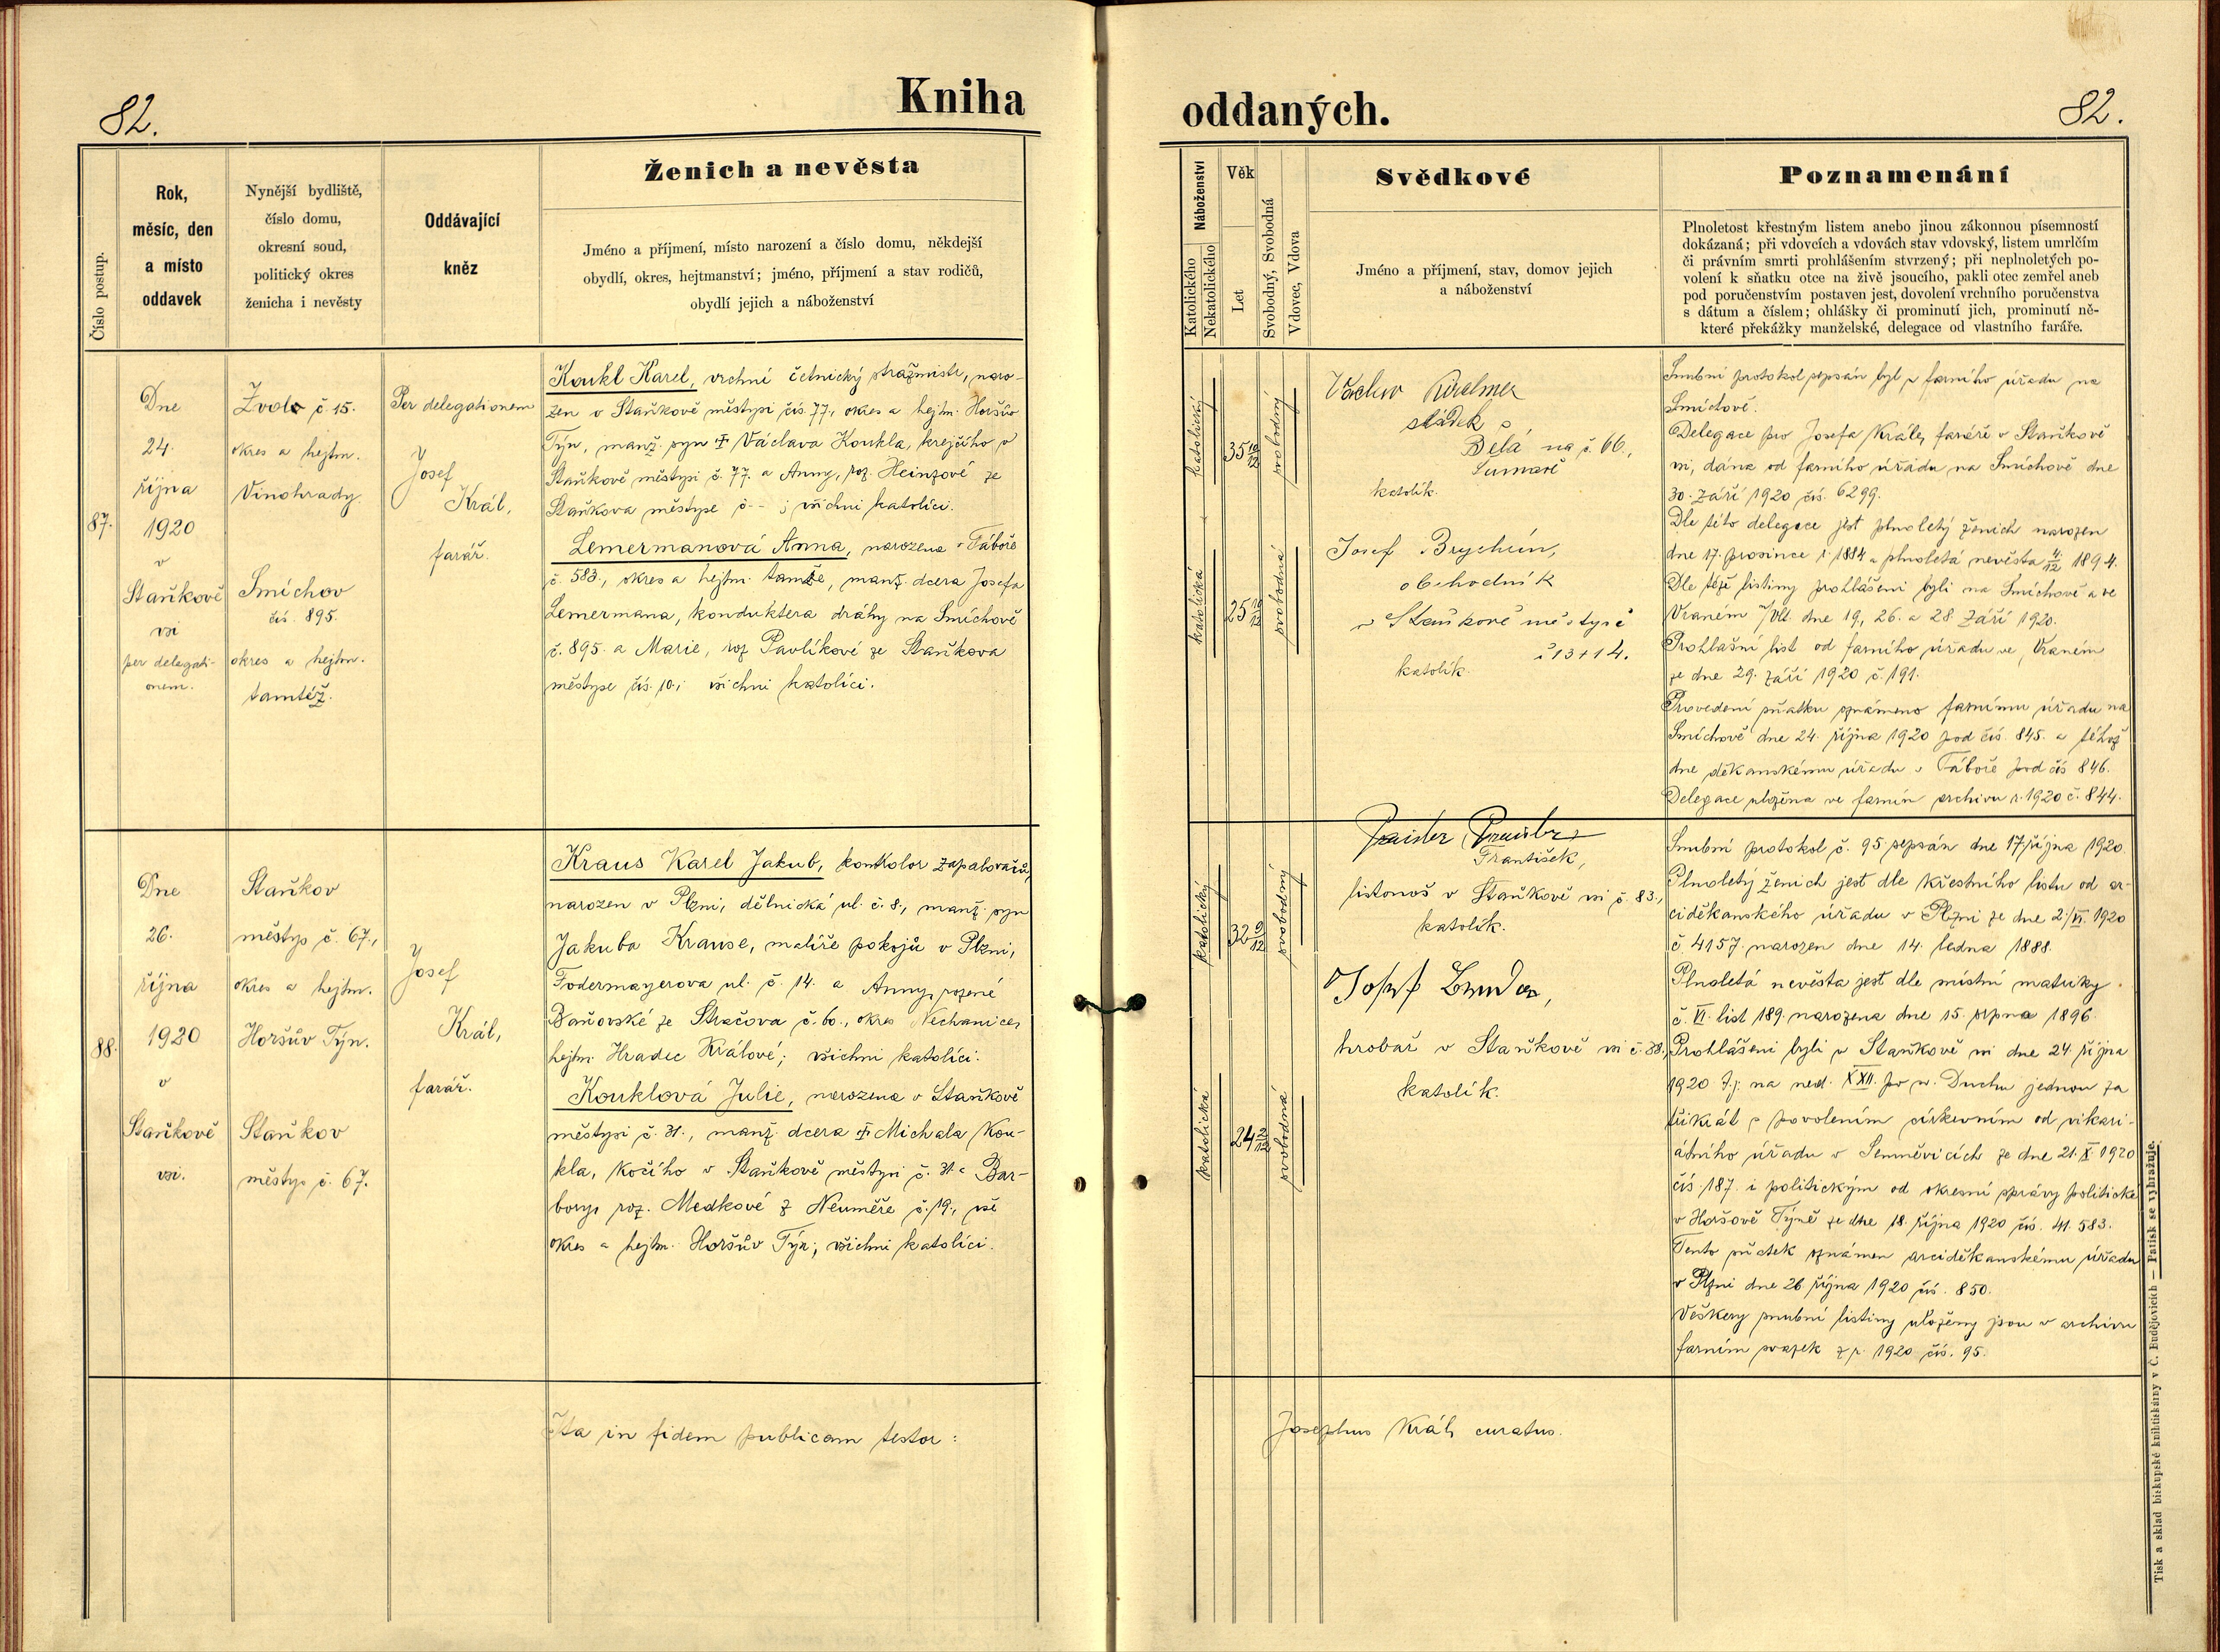 82.
Kniha
Číslo postup.
Rok,
měsíc, den
a místo
oddavek
Nynější bydliště,
číslo domu,
okresní soud,
politický okres
ženicha i nevěsty
Oddávající
kněz
Ženich a nevěsta
Jméno a příjmení, místo narození a číslo domu, někdejší
obydlí, okres, hejtmanství; jméno, příjmení a stav rodičů,
obydlí jejich a náboženství
87.
Dne
24.
října
1920
v
Staňkově
vsi
per delegati-
onem.
Zvole č 15.
okres a hejtm.
Vinohrady.
Smíchov
čís. 895.
okres a hejtm.
tamtéž.
Per delegationem
Josef
Král,
farář.
Koukl Karel, vrchní četnický strážmistr, naro-
zen v Staňkově městysi čís. 77., okres a hejtm. Horšův
Týn, manž. syn † Václava Koukla, krejčího v
Staňkově městysi č. 77. a Anny, roz. Heinzové ze
Staňkova městyse č -- ; všichni katolíci.
Lemermanová Anna, narozena v Táboře
č. 583., okres a hejtm. tamže, manž. dcera Josefa
Lemermana, konduktera dráhy na Smíchově
č. 895. a Marie, roz Pavlíkové ze Staňkova
městyse čís. 10.; všichni katolíci.
88.
Dne
26.
října
1920
v
Staňkově
vsi.
Staňkov
městys č. 67.,
okres a hejtm.
Horšův Týn.
Staňkov
městys č. 67.
Josef
Král,
farář.
Kraus Karel Jakub, kontrolor zapalovačů,
narozen v Plzni, dělnická ul. č. 8., manž. syn
Jakuba Krause, malíře pokojů v Plzni,
Fodermayerova ul. č. 14. a Anny, rozené
Baňovské ze Stračova č. 60., okres Nechanice,
hejtm. Hradec Králové; všichni katolíci.
Kouklová Julie, narozena v Staňkově
městysi č. 31., manž. dcera † Michala Kou-
kla, kočího v Staňkově městysi č. 31. a Bar-
bory, roz. Medkové z Neuměře č. 19., vše
okres a hejtm. Horšův Týn; všichni katolíci.
Ita in fidem publicam testor:
oddaných.
82.
Náboženství
Katolického
Nekatolického
Věk
Let
Svobodný, Svobodná
Vdovec, Vdova
Svědkové
Jméno a příjmení, stav, domov jejich
a náboženství
Poznamenání
Plnoletost křestným listem anebo jinou zákonnou písemností
dokázaná; při vdovcích a vdovách stav vdovský, listem umrlčím
či právním smrti prohlášením stvrzený; při neplnoletých po-
volení k sňatku otce na živě jsoucího, pakli otec zemřel aneb
pod poručenstvím postaven jest, dovolení vrchního poručenstva
s dátum a číslem; ohlášky či prominutí jich, prominutí ně-
které překážky manželské, delegace od vlastního faráře.
katolický
35 10/12
svobodný
katolická
25 10/12
svobodná
Václav
sládek
Belá na č. 66.,
katolík.
Josef Brychcín,
obchodník
v Staňkově městysi
č 13 + 14.
katolík.
Snubní protokol sepsán byl u farního úřadu na
Smíchově.
Delegace pro Josefa Krále, faráře v Staňkově
vsi, dána od farního úřadu na Smíchově dne
30. září 1920 čís. 6299.
Dle této delegace jest plnoletý ženich narozen
dne 17. prosince r. 1884 a plnoletá nevěsta 4/12 1894.
Dle téže listiny prohlášeni byli na Smíchově a ve
Vraném n/Vlt. dne 19., 26. a 28. září 1920.
Prohlašní list od farního úřadu ve Vraném
ze dne 29. září 1920 č. 191.
Provedení sňatku oznámeno farnímu úřadu na
Smíchově dne 24. října 1920 pod čís. 845. a téhož
dne děkanskému úřadu v Táboře pod čís 846.
Delegace uložena ve farním archivu r. 1920 č. 844.
katolický
32 9/12
svobodný
katolická
24 2/12
svobodná
František,
listonoš v Staňkově vsi č. 83.,
katolík.
Josef
hrobař v Staňkově vsi č. 88.,
katolík.
Snubní protokol č. 95 sepsán dne 17. října 1920.
Plnoletý ženich jest dle křestního listu od ar-
ciděkanského úřadu v Plzni ze dne 2./VI. 1920
č 4157. narozen dne 14. ledna 1888.
Plnoletá nevěsta jest dle místní matriky
č. VI. list 189. narozena dne 15. srpna 1896.
Prohlášeni byli v Staňkově vsi dne 24. října
1920 t. j. na ned. XXII. po sv. Duchu jednou za
třikrát s povolením církevním od vikari-
átního úřadu v Semněvicích ze dne 21. X. 1920
čís 187. i politickým od okresní správy politické
v Horšově Týně ze dne 18. října 1920 čís. 41.583.
Tento sňatek oznámen arciděkanskému úřadu
v Plzni dne 26. října 1920 čís. 850.
Veškery snubní listiny uloženy jsou v archivu
farním svazek z r. 1920 čís. 95.
Josephus Král, curatus.
Tisk a sklad biskupské knihtiskárny v Č. Budějovicích — Patisk se vyhražuje.